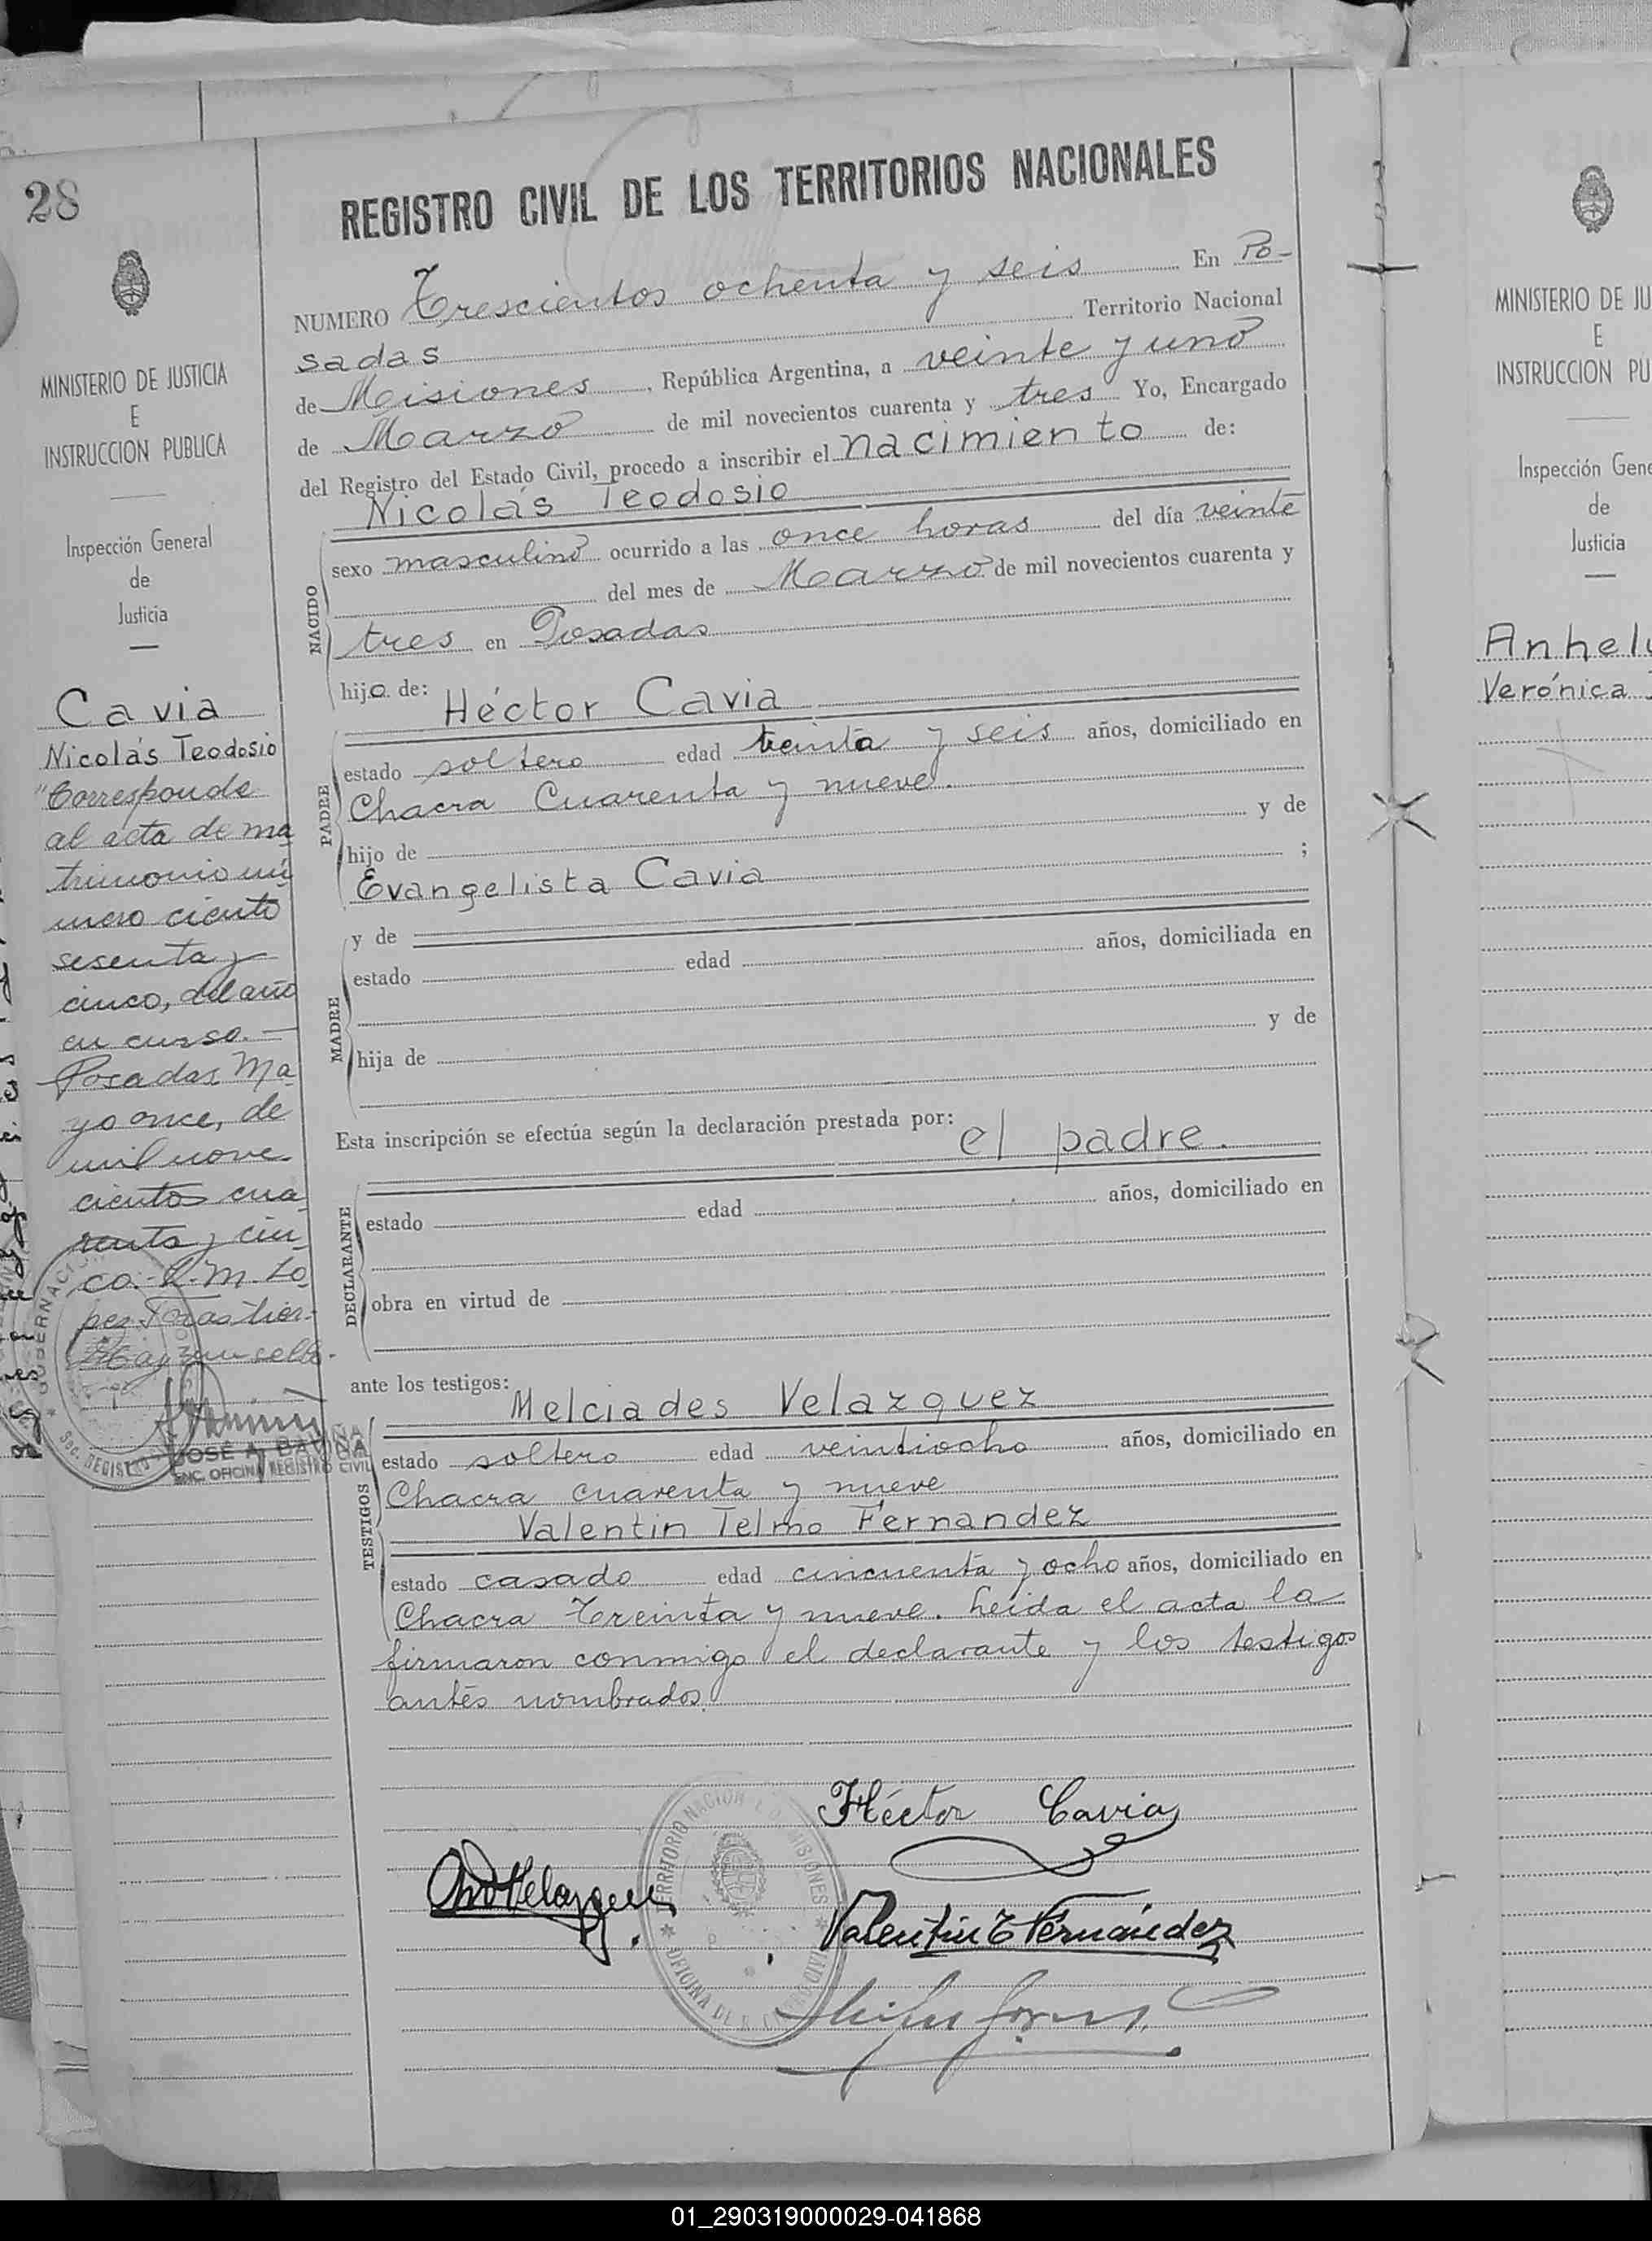 28
MINISTERIO DE JUSTICIA
E
INSTRUCCION PUBLICA
Inspección General
de
Justicia
Cavia
Nicolás Teodosio
"Corresponde
al acta de ma
trimonio nú
mero ciento
sesenta y
cinco, del año
en curso.—
Posadas, Ma
yo once, de
mil nove
cientos cua
renta y cin
co.-
JOSÉ A. BAVINA
ENC. OFICINA REGISTRO CIVIL
REGISTRO CIVIL DE LOS TERRITORIOS NACIONALES
NUMERO Trescientos ochenta y seis En Po-
sadas Territorio Nacional
de Misiones, República Argentina, a veinte y uno
de Marzo de mil novecientos cuarenta y tres Yo, Encargado
del Registro del Estado Civil, procedo a inscribir el nacimiento de:
Nicolás Teodosio
NACIDO
sexo masculino ocurrido a las once horas del día veinte
del mes de Marzo de mil novecientos cuarenta y
tres en Posadas
hijo de: Héctor Cavia
PADRE
estado soltero edad treinta y seis años, domiciliado en
Chacra Cuarenta y nueve.
hijo de y de
Evangelista Cavia ;
MADRE
y de
estado edad años, domiciliada en
hija de y de
Esta inscripción se efectúa según la declaración prestada por: el padre.
DECLARANTE
estado edad años, domiciliado en
obra en virtud de
ante los testigos:
Melciades Velazquez
TESTIGOS
estado soltero edad veintiocho años, domiciliado en
Chacra cuarenta y nueve
Valentin Telmo Fernandez
estado casado edad cincuenta y ocho años, domiciliado en
Chacra Treinta y nueve. Leida el acta la
firmaron conmigo el declarante y los testigos
antes nombrados.
Héctor Cavia
Velazquez
Valentin T Fernández
TERRITORIO NACIONAL DE MISIONES
OFICINA DE R. CIVIL
MINISTERIO DE JU
E
INSTRUCCION PU
Inspección Gene
de
Justicia
Anhel
Verónica
01_290319000029-041868